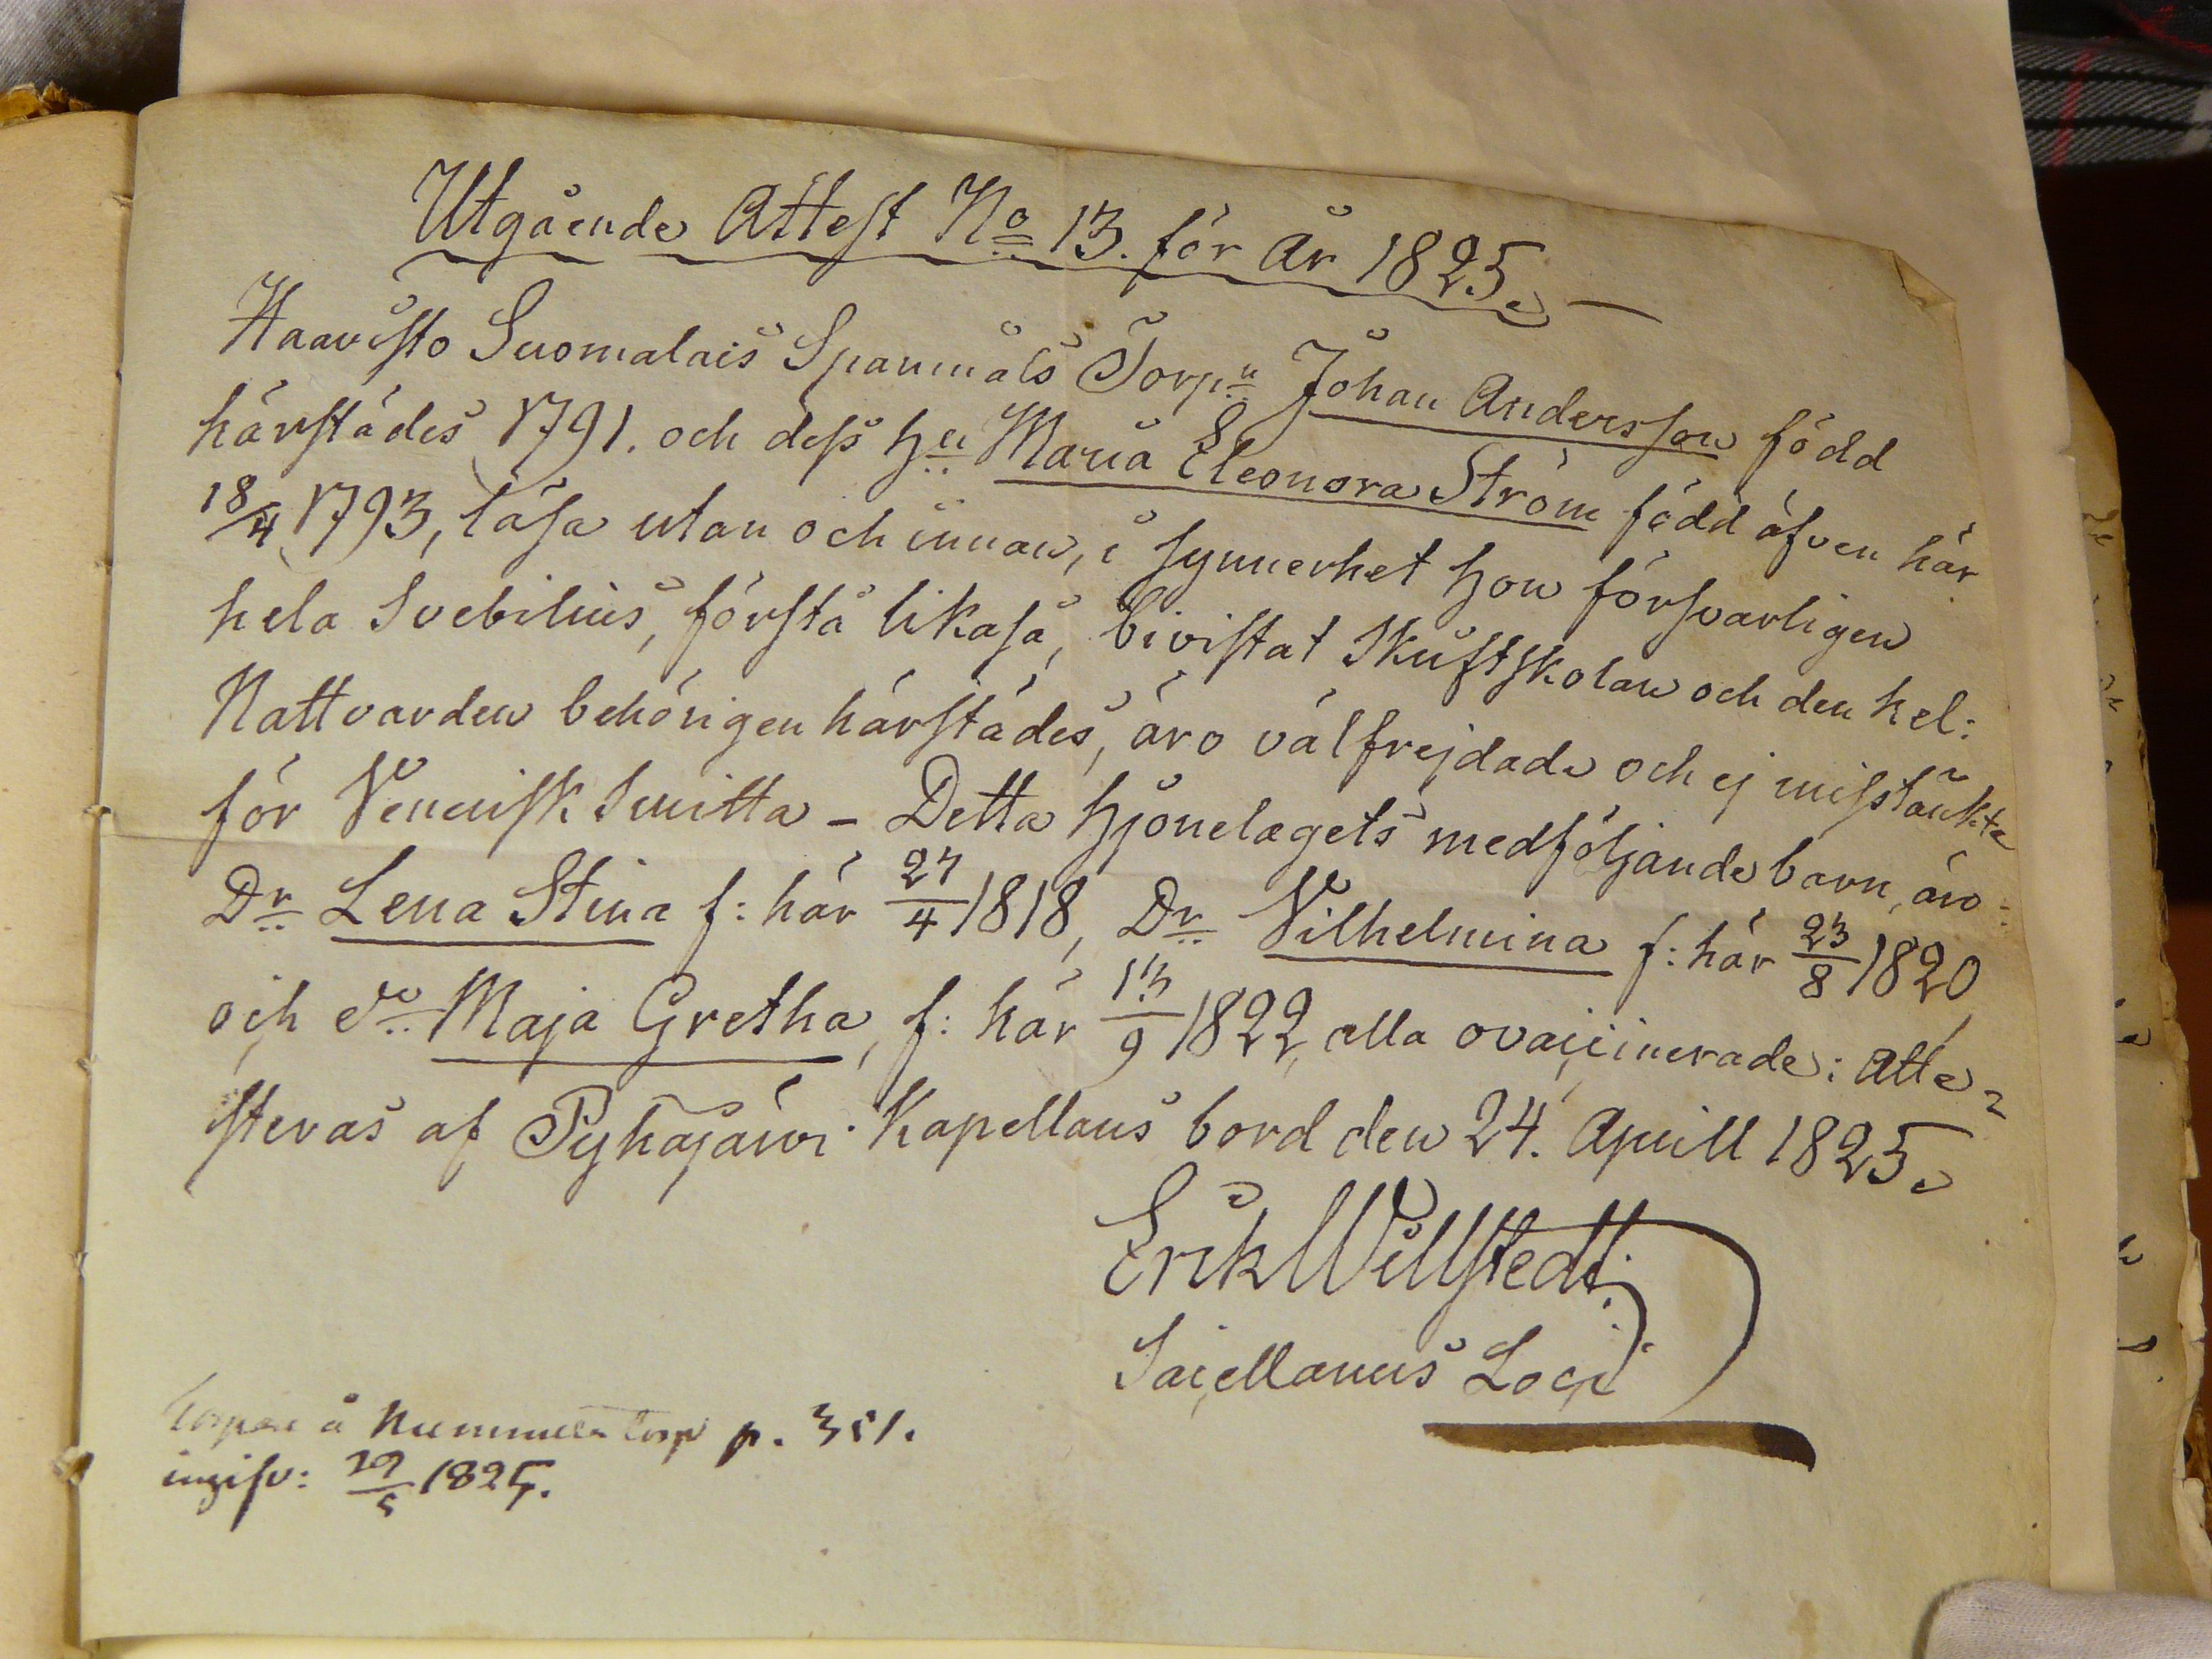 Utgående Attest No 13. för år 1825. —
Haavisto Suomalais Spanmåls Torp.n Johan Andersson född
härstädes 1791. och dess hu Maria Eleonora Ström född äfven här
18/4 1793, läsa utan och innan, i synnerhet hon försvarligen
hela Svebilius, förstå likaså, bivistat Skriftskolan och den hel:
Nattvarden behörigen härstädes, äro välfrejdade och ej misstänkte
för Venerisk Smitta – Detta hjonelagets medföljande barn, äro:
Dr Lena Stina f: här 27/4 1818, Dr Vilhelmina f: här 23/8 1820
och Dr Maja Gretha, f: här 13/9 1822, alla ovaccinerade: Atte=
steras af Pyhäjärvi Kapellans bord den 24. Aprill 1825.
Erik Willstedt.
Sacellanus Loci
å Nummela torp p. 351.
ingifv: 29/5 1825.